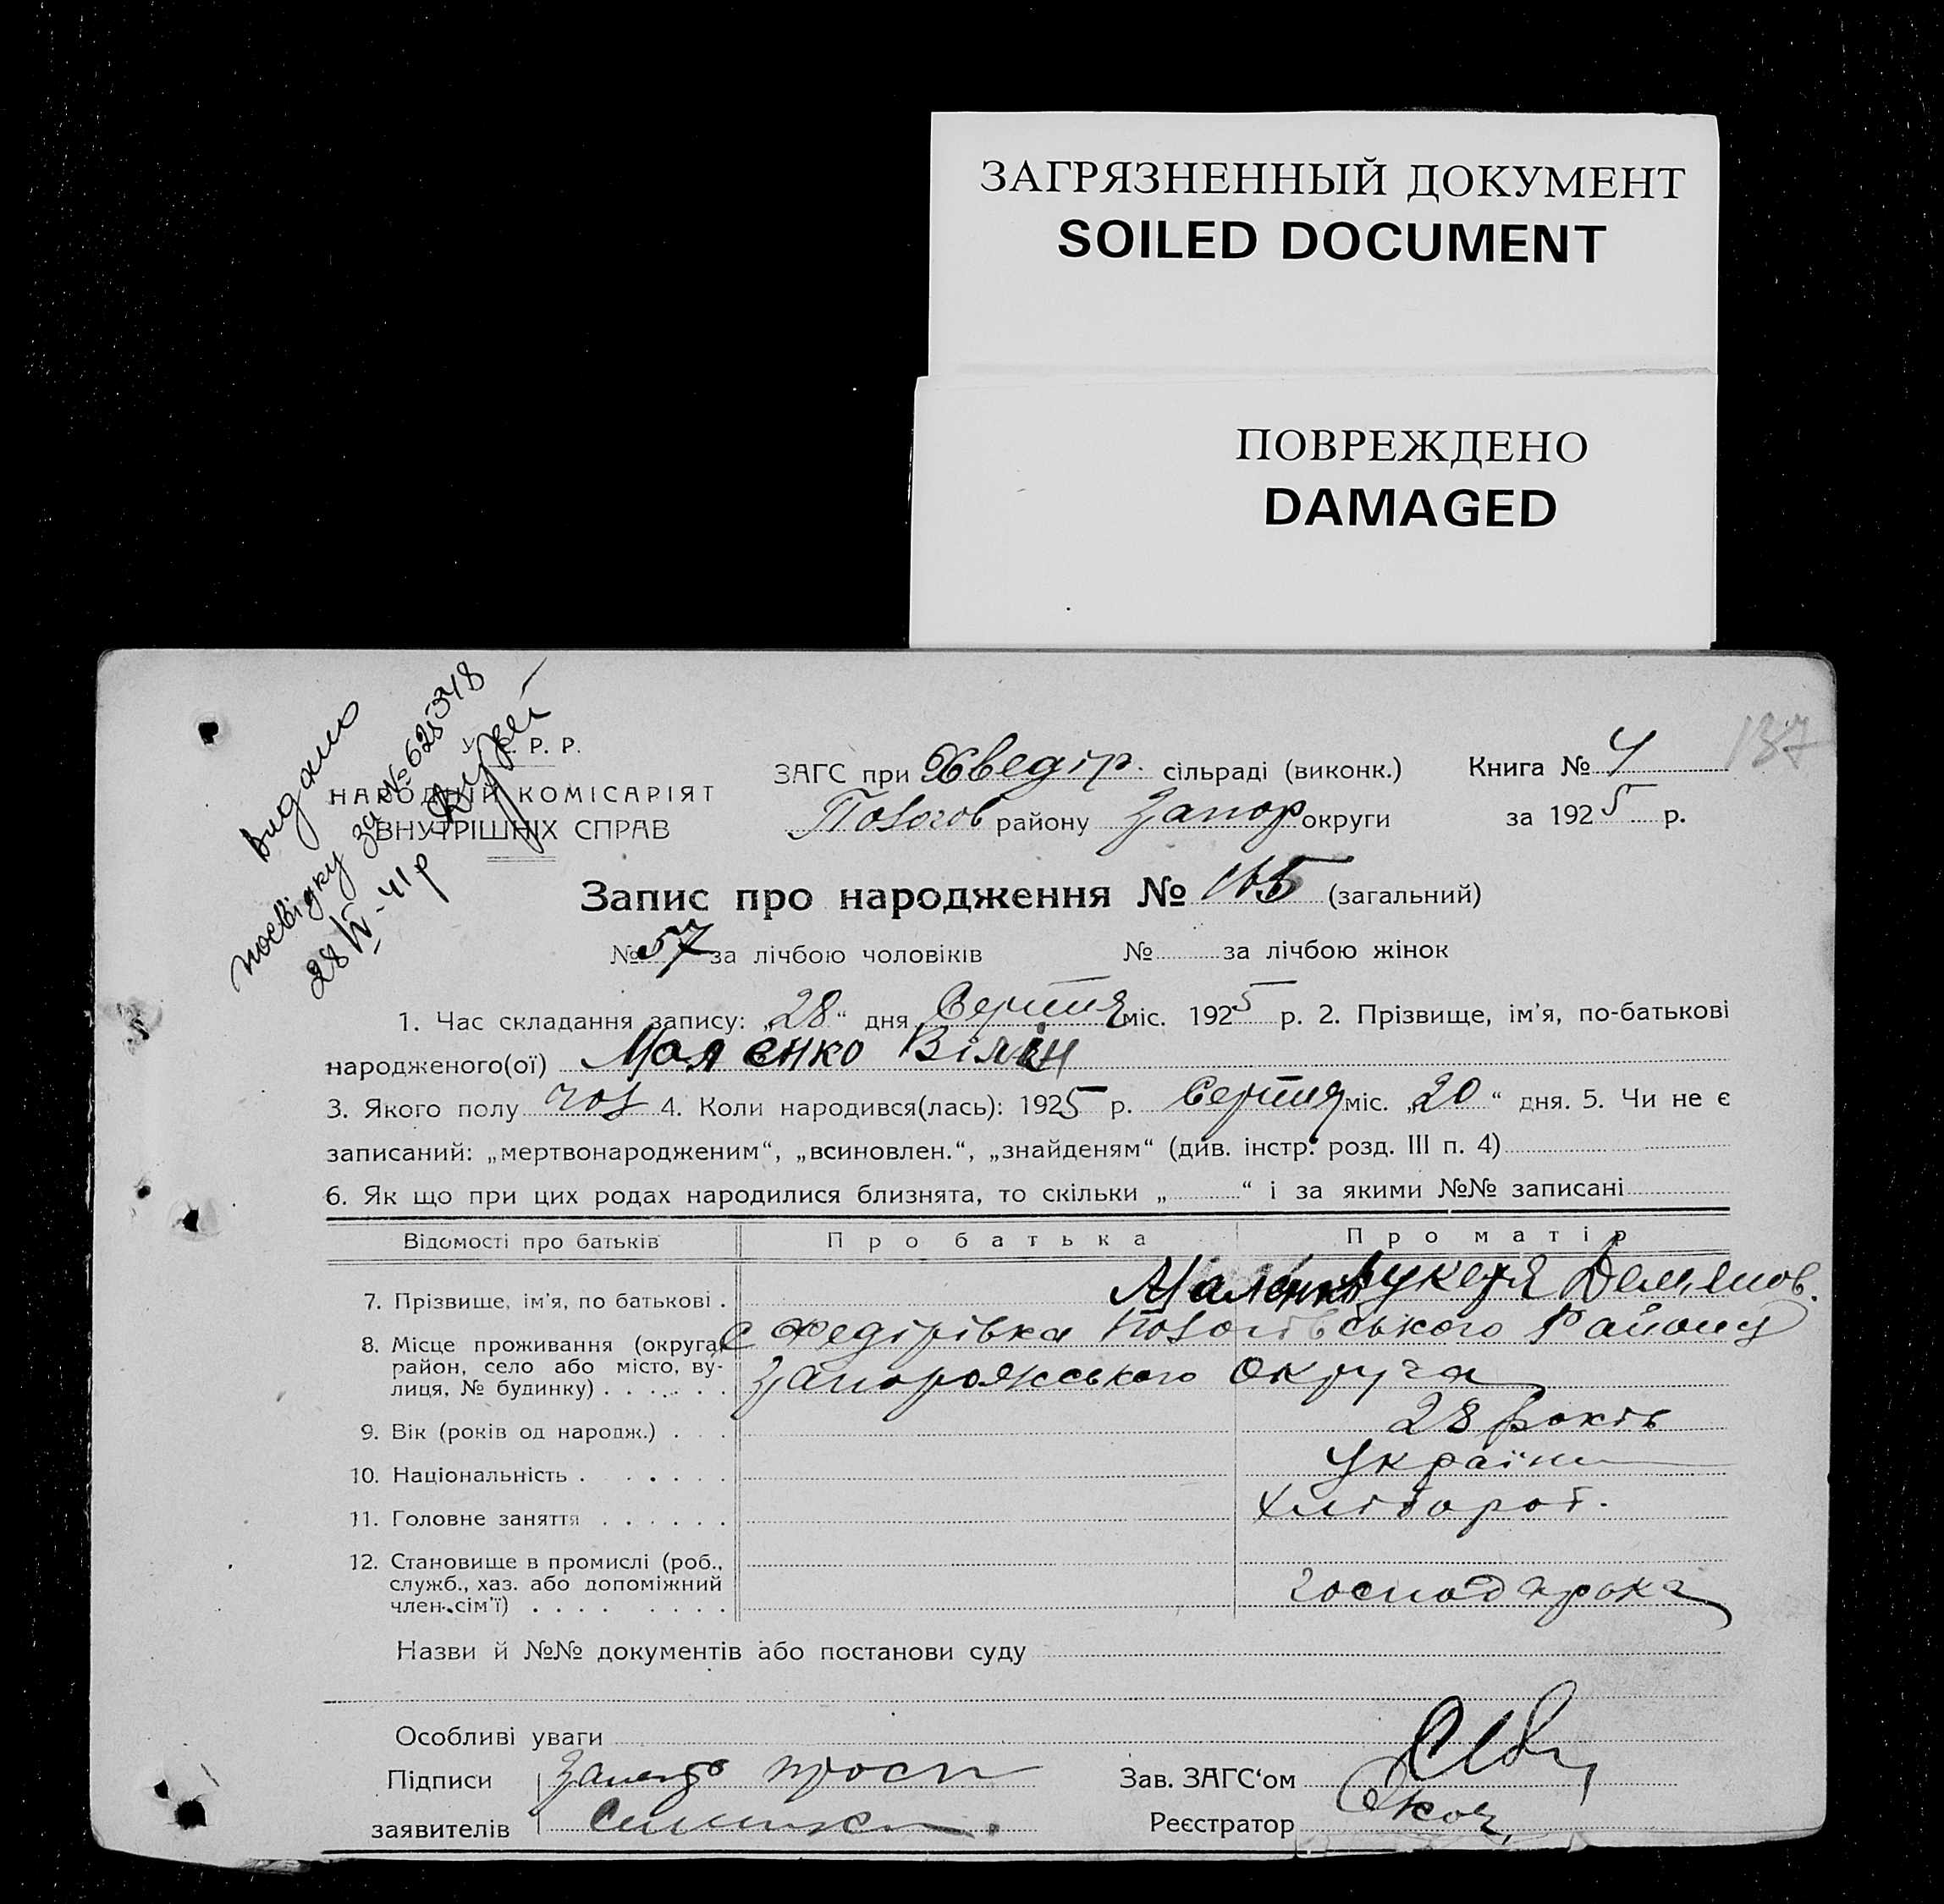 ЗАГРЯЗНЕННЫЙ ДОКУМЕНТ
SOILED DOCUMENT
ПОВРЕЖДЕНО
DAMAGED
137
видано
посвідку за №625348
28/IV-41р
У. С. Р. Р.
НАРОДНІЙ КОМІСАРІЯТ
ВНУТРІШНІХ СПРАВ
ЗАГС при Хведір. сільраді (виконк.) Книга № 4
Пологов району Запор округи за 1925 р.
Запис про народження № 165 (загальний)
№ 57 за лічбою чоловіків № за лічбою жінок
1. Час складання запису: „28“ дня Серпня міс. 1925 р. 2. Прізвище, ім’я, по-батькові
народженого(ої) Маленко Вілін
3. Якого полу чол 4. Коли народився(лась): 1925 р. Серпня міс. „20“ дня. 5. Чи не є
записаний: „мертвонародженим“, „всиновлен.“, „знайденям“ (див. інстр. розд. III п. 4)
6. Як що при цих родах народилися близнята, то скільки „ “ і за якими №№ записані
Відомості про батьків Про батька Про матір
7. Прізвище, ім’я, по батькові . Маленко Лукеря Демянов.
8. Місце проживання (округа, с Федірівка Пологівського Району
район, село або місто, ву-
лиця, № будинку) . . . . . . Запорожського Округа
9. Вік (років од народж.) . . . 28 років
10. Національність . . . . . Україн
11. Головне заняття . . . . . . Хлібороб.
12. Становище в промислі (роб.,
служб., хаз. або допоміжний
член сім’ї) . . . . . . . . господарока
Назви й №№ документів або постанови суду
Особливі уваги
Підписи
заявителів
Зав. ЗАГС‘ом
Реєстратор